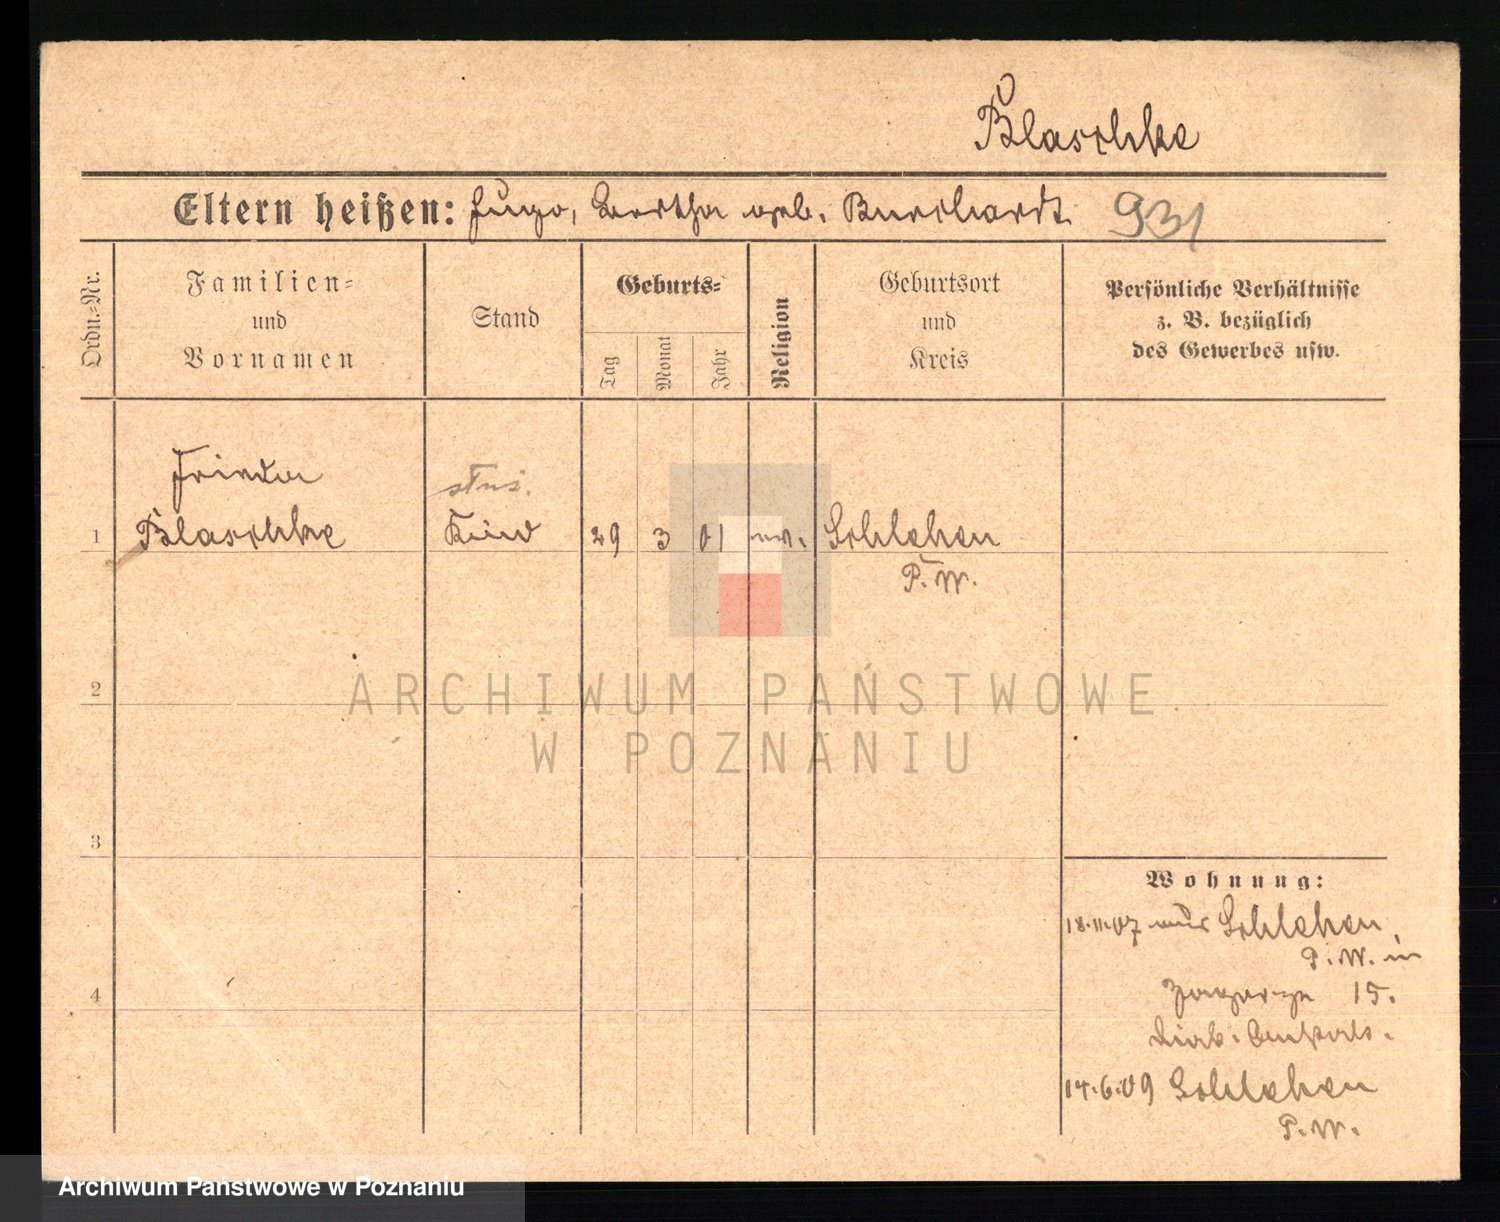 Blaschke
Eltern heißen: Hugo, Bertha geb. Burchardt 931
Ordn.-Nr.
Familien-
und
Vornamen
Stand
Geburts-
Tag
Monat
Jahr
Religion
Geburtsort
und
Kreis
Persönliche Verhältnisse
z. B. bezüglich
des Gewerbes usw.
Frieda
1 Blaschke Kind 29 3 01 ev. Schlehen
P. W.
2
3
4
Wohnung:
18.11.07 aus Schlehen,
P. W. in
15.
Diak.
14.6.09 Schlehen
P. W.
ARCHIWUM PAŃSTWOWE
W POZNANIU
Archiwum Państwowe w Poznaniu